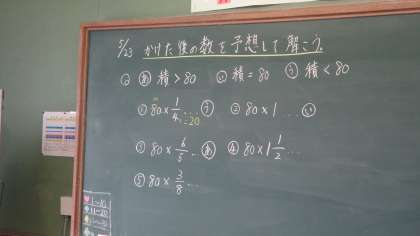 5/23 かけた後の数を予想して解こう。
あ 積>80 い 積=80 う 積<80
① 80×1/4 … う ② 80×1 … い
=20
③ 80×6/5 … あ ④ 80×1 1/2 …
⑤ 80×3/8 …